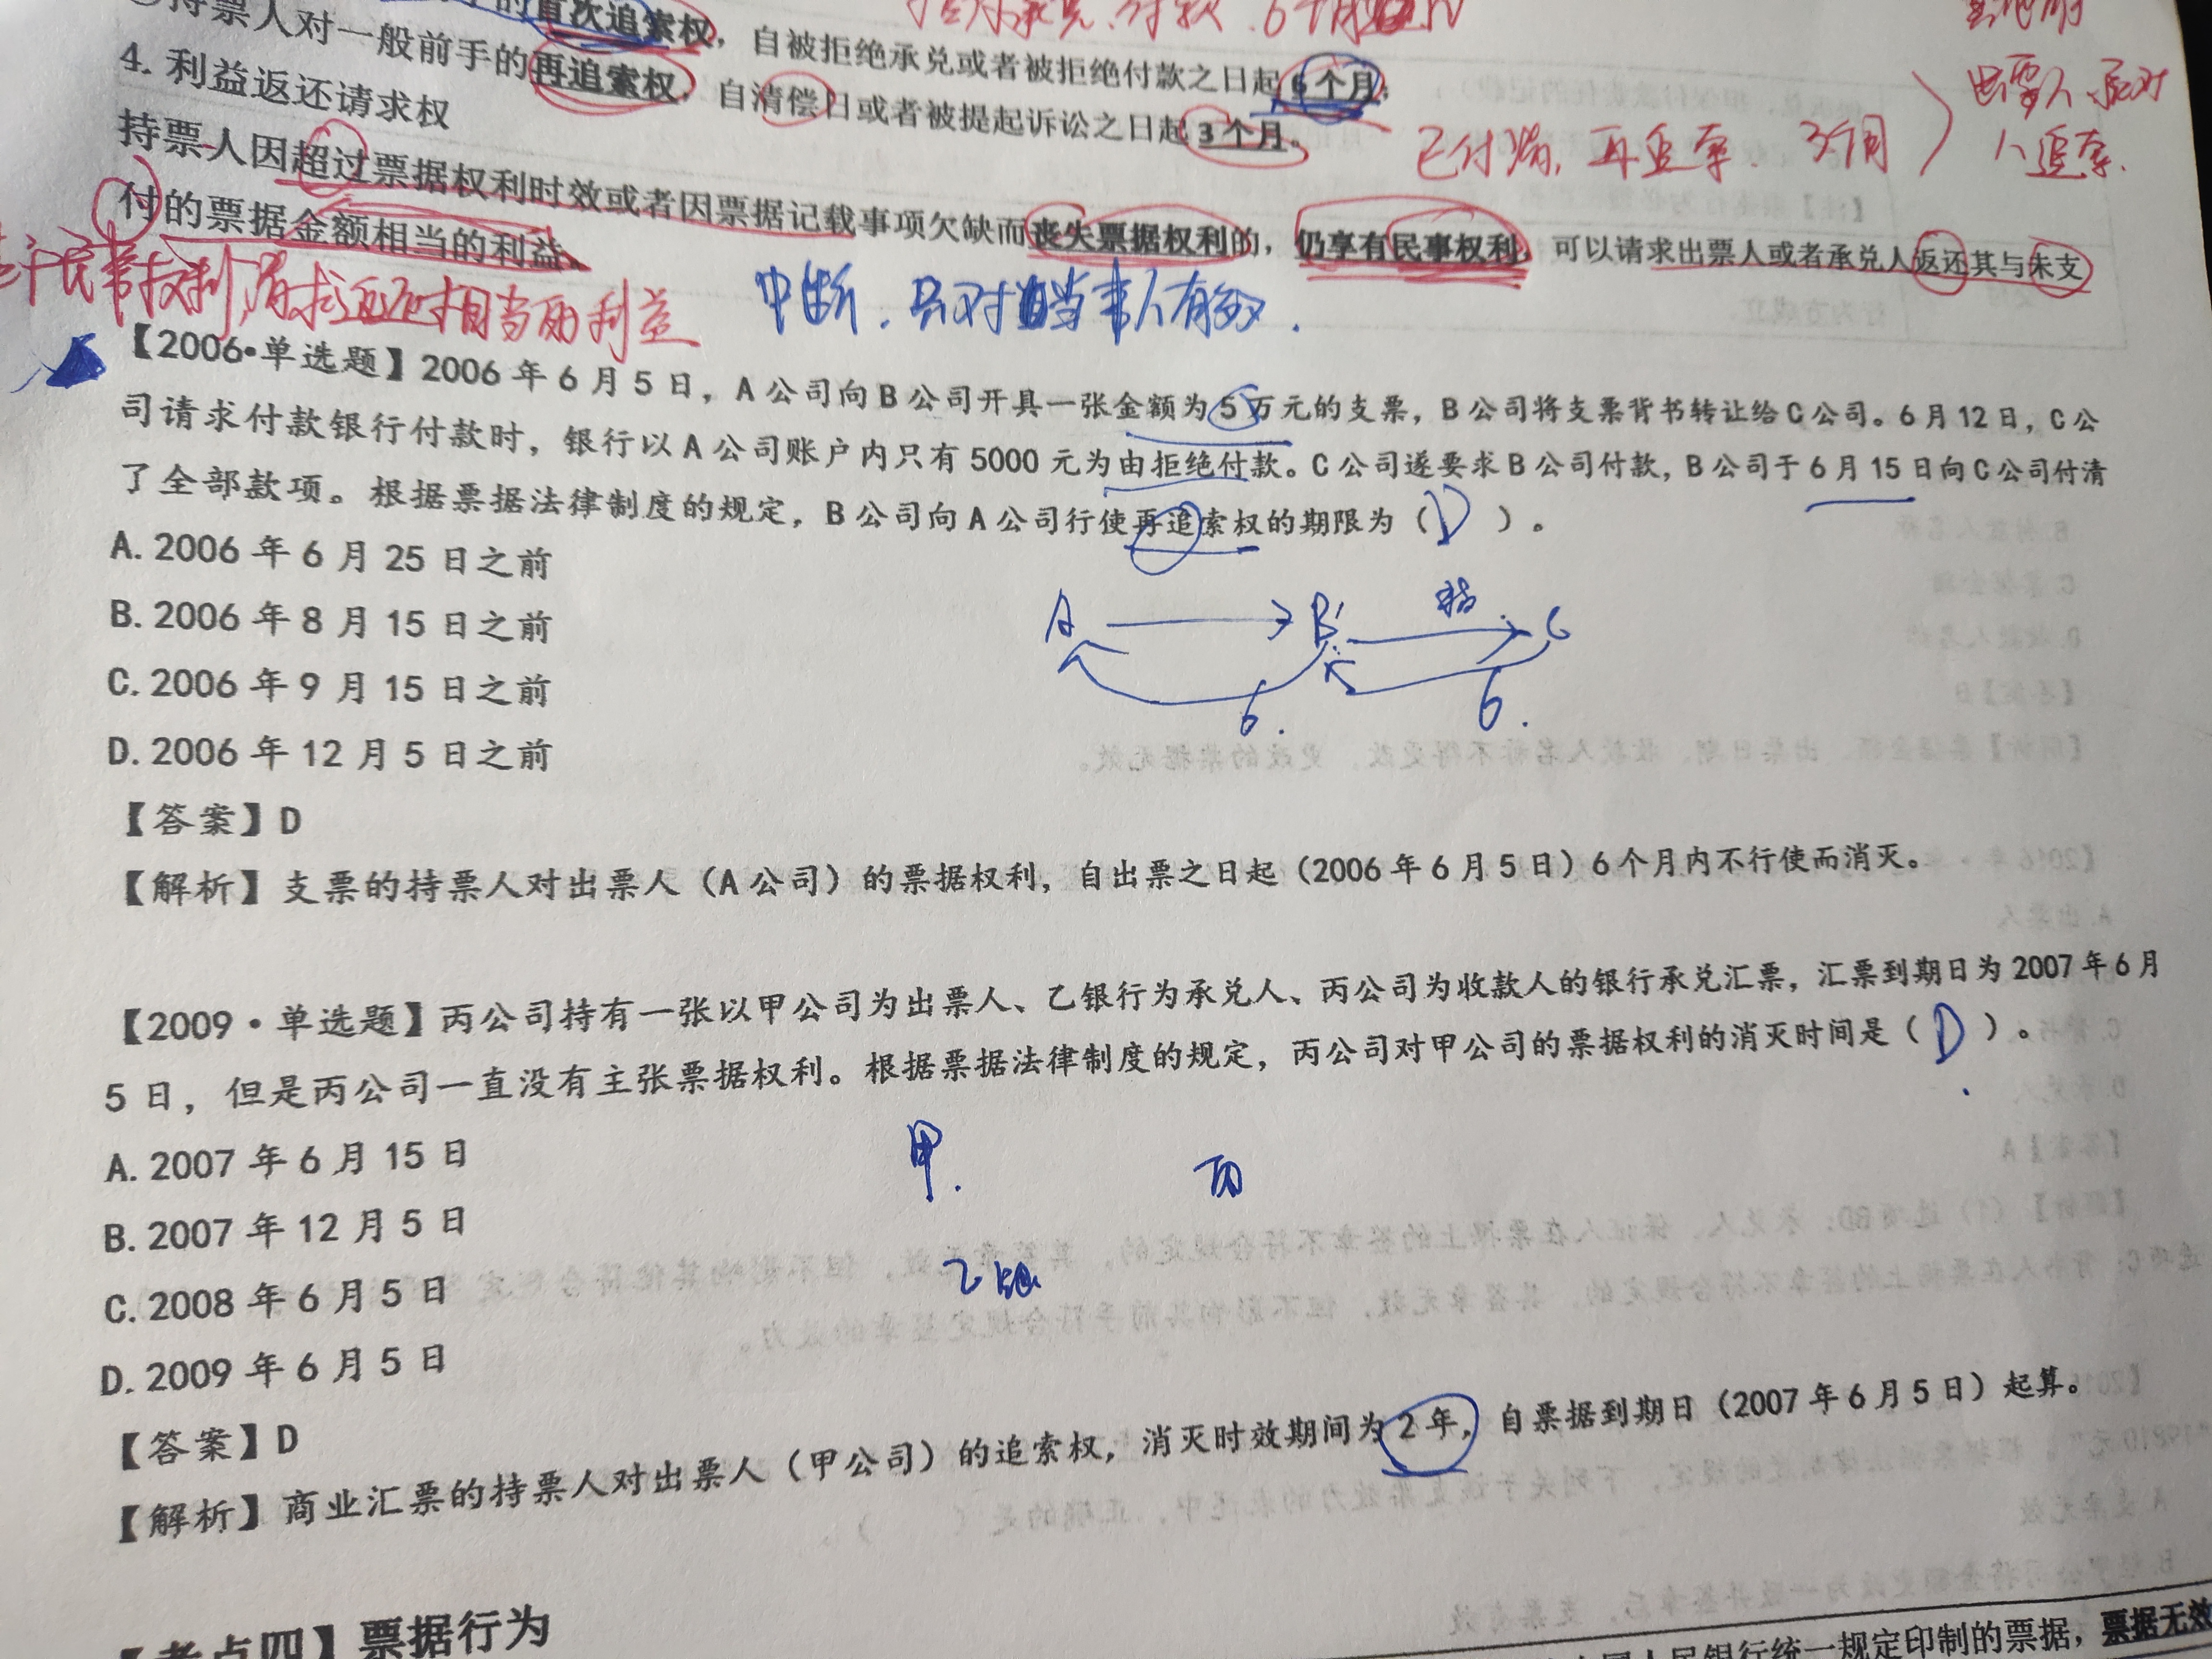 持票人对一般前手的再追索权，自清偿日或者被提起诉讼之日起3个月。
首次追索权，自被拒绝承兑或者被拒绝付款之日起6个月；
已付清，再追索．3个月
出票人、承兑
人追索．
4. 利益返还请求权
持票人因超过票据权利时效或者因票据记载事项欠缺而丧失票据权利的，仍享有民事权利，可以请求出票人或者承兑人返还其与未支
付的票据金额相当的利益。
民事权利，请求返还相当的利益
中断．只对当事人有效．
【2006•单选题】2006 年 6 月 5 日，A 公司向 B 公司开具一张金额为 5 万元的支票，B 公司将支票背书转让给 C 公司。6 月 12 日，C 公
司请求付款银行付款时，银行以 A 公司账户内只有 5000 元为由拒绝付款。C 公司遂要求 B 公司付款，B 公司于 6 月 15 日向 C 公司付清
了全部款项。根据票据法律制度的规定，B 公司向 A 公司行使再追索权的期限为（ D ）。
A. 2006 年 6 月 25 日之前
B. 2006 年 8 月 15 日之前
C. 2006 年 9 月 15 日之前
D. 2006 年 12 月 5 日之前
A B C
6. 6.
【答案】D
【解析】支票的持票人对出票人（A 公司）的票据权利，自出票之日起（2006 年 6 月 5 日）6 个月内不行使而消灭。
【2009•单选题】丙公司持有一张以甲公司为出票人、乙银行为承兑人、丙公司为收款人的银行承兑汇票，汇票到期日为 2007 年 6 月
5 日，但是丙公司一直没有主张票据权利。根据票据法律制度的规定，丙公司对甲公司的票据权利的消灭时间是（ D ）。
A. 2007 年 6 月 15 日
B. 2007 年 12 月 5 日
C. 2008 年 6 月 5 日
D. 2009 年 6 月 5 日
甲. 丙
乙银
【答案】D
【解析】商业汇票的持票人对出票人（甲公司）的追索权，消灭时效期间为 2 年，自票据到期日（2007 年 6 月 5 日）起算。
【考点四】票据行为
人民银行统一规定印制的票据，票据无效